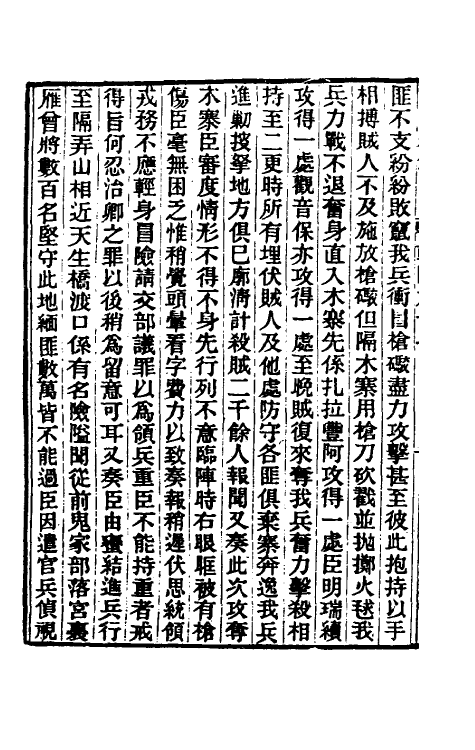 匪不支紛紛敗竄我兵衝冒槍礮盡力攻擊甚至彼此抱持以手
相搏賊人不及施放槍礮但隔木寨用槍刀砍戳並拋擲火毬我
兵力戰不退奮身直入木寨先係扎拉豐阿攻得一處臣明瑞續
攻得一處觀音保亦攻得一處至晚賊復來奪我兵奮力擊殺相
持至二更時所有埋伏賊人及他處防守各匪俱棄寨奔逸我兵
進勦按拏地方俱已廓清計殺賊二千餘人報聞又奏此次攻奪
木寨臣審度情形不得不身先行列不意臨陣時右眼眶被有槍
傷臣毫無困乏惟稍覺頭暈看字費力以致奏報稍遲伏思統領
戎務不應輕身冒險請交部議罪以為領兵重臣不能持重者戒
得旨何忍治卿之罪以後稍為留意可耳又奏臣由蠻結進兵行
至隔弄山相近天生橋渡口係有名險隘聞從前鬼家部落宮裏
雁曾將數百名堅守此地緬匪數萬皆不能過臣因遣官兵偵視